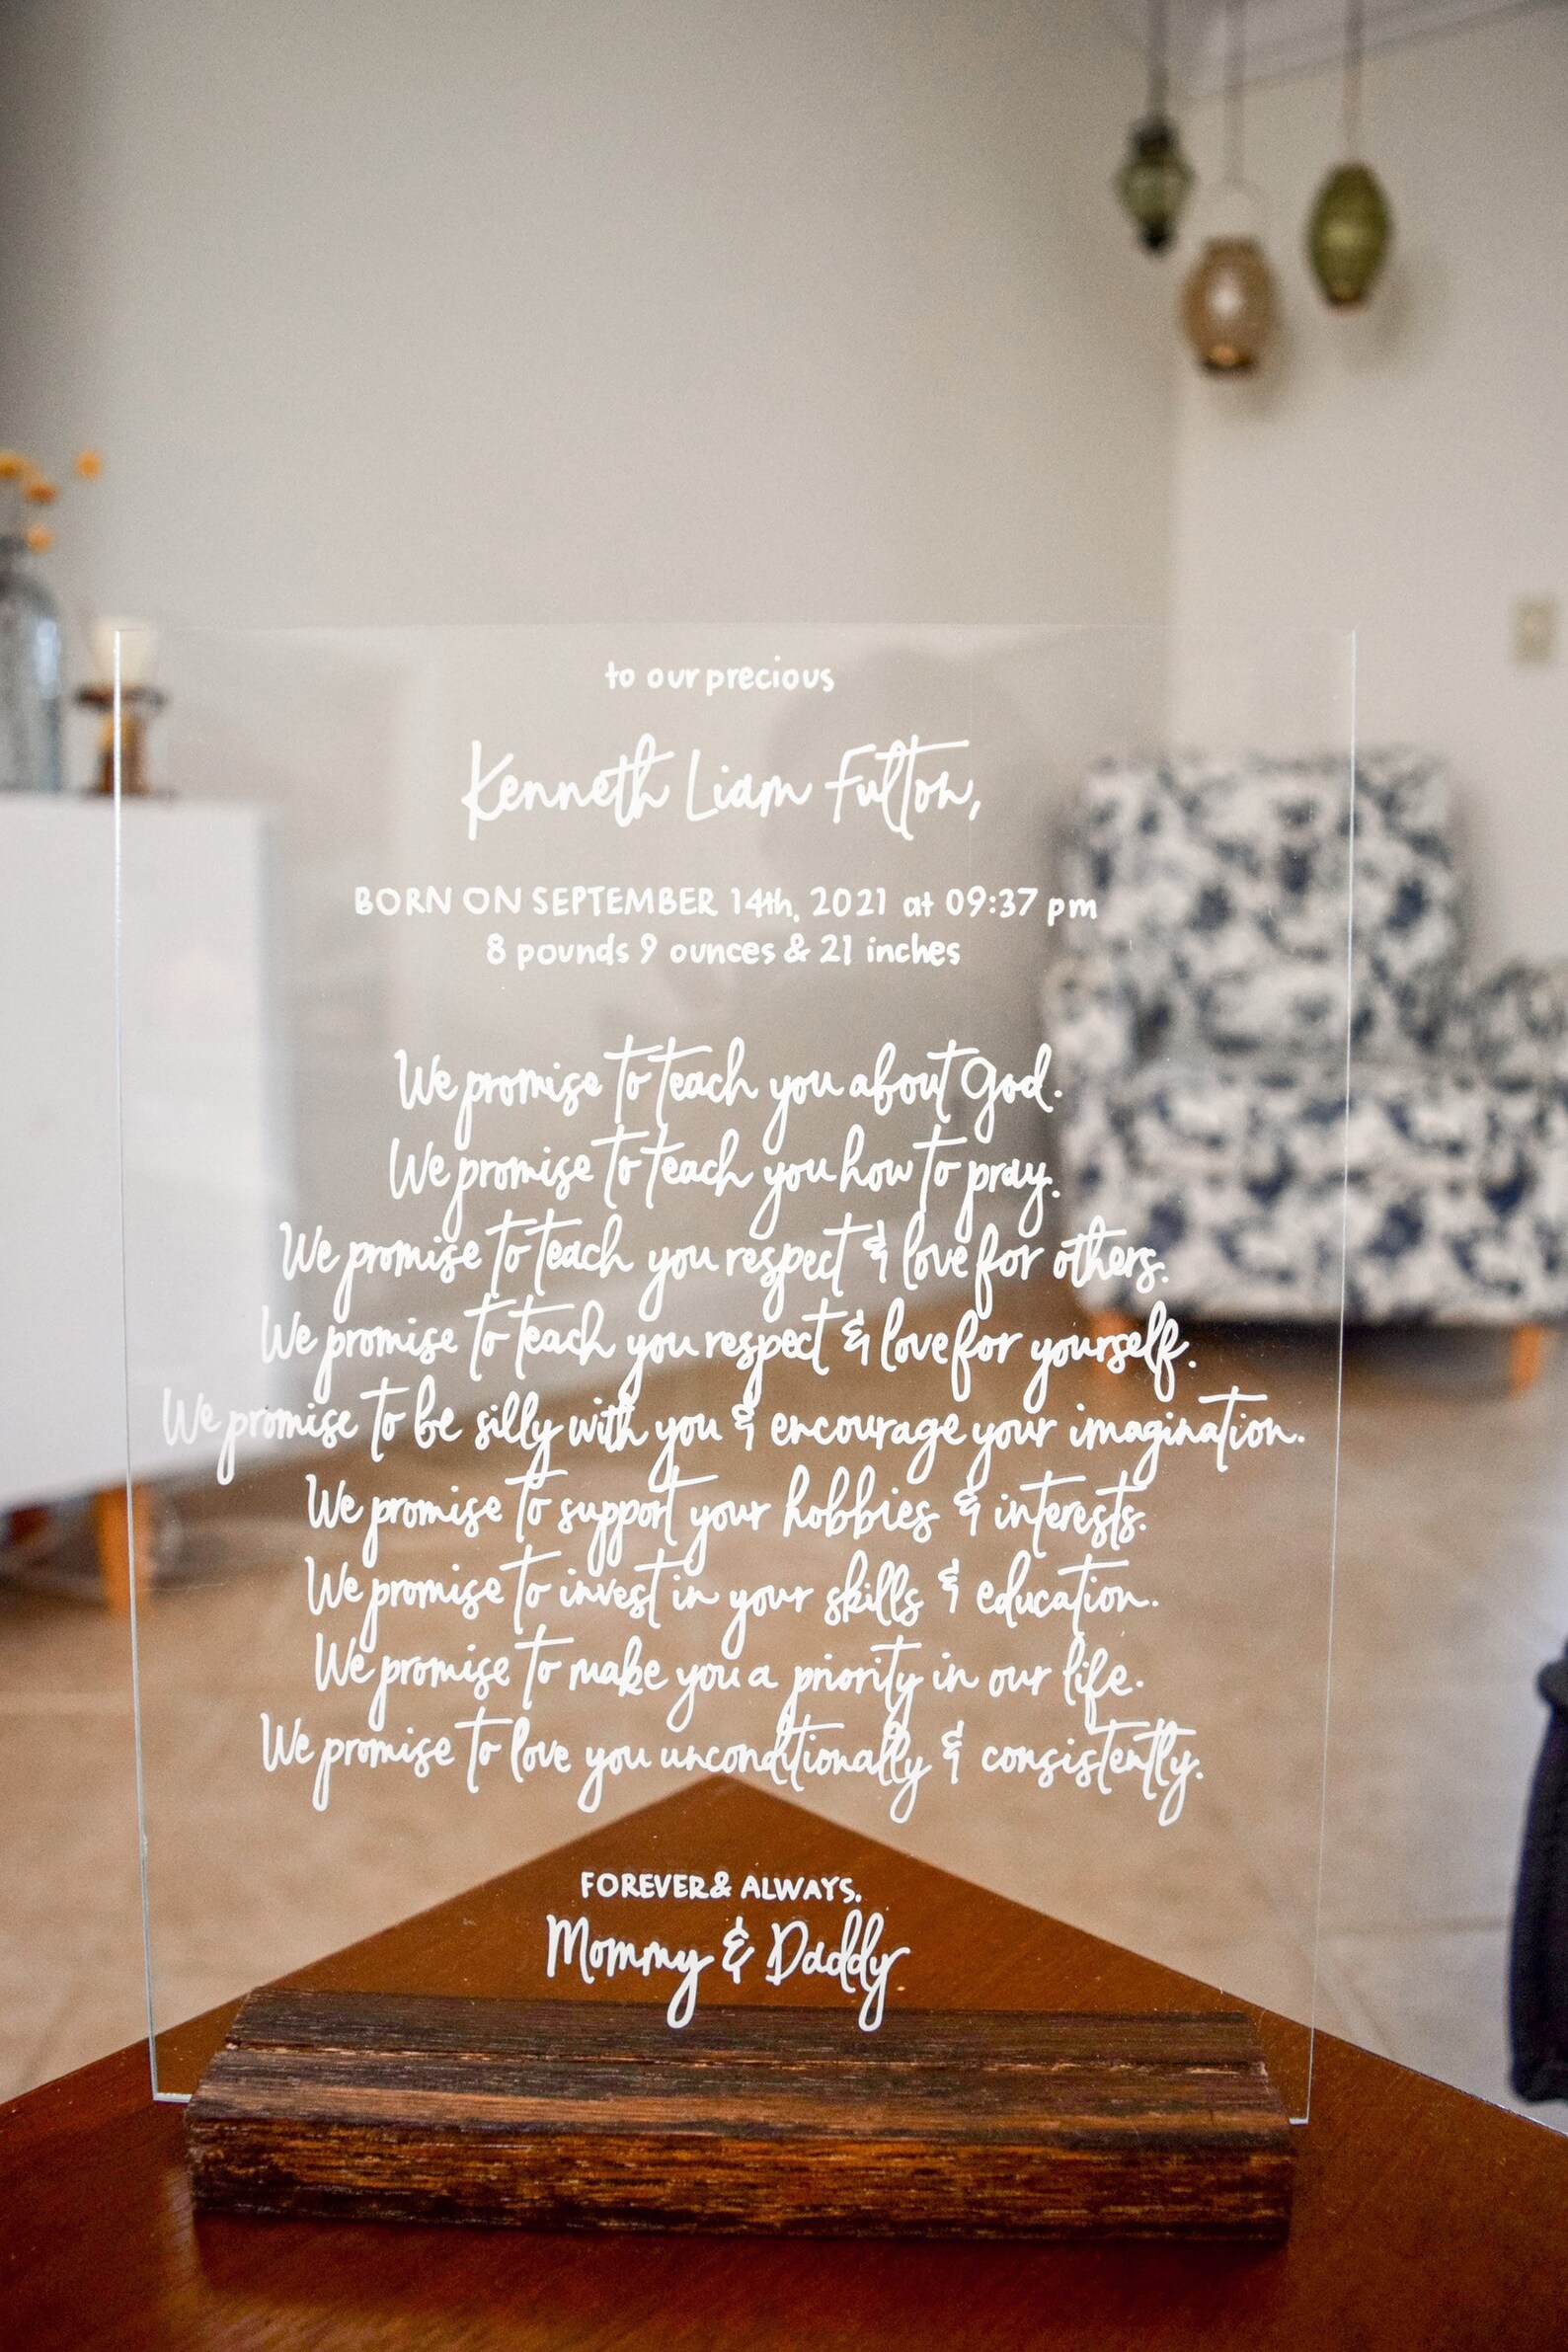 to our precious
Kenneth Liam Fulton,
BORN ON SEPTEMBER 14th, 2021 at 09:37 pm
8 pounds 9 ounces & 21 inches
We promise to teach you about God.
We promise to teach you how to pray.
We promise to teach you respect & love for others.
We promise to teach you respect & love for yourself.
We promise to be silly with you & encourage your imagination.
We promise to support your hobbies & interests.
We promise to invest in your skills & education.
We promise to make you a priority in our life.
We promise to love you unconditionally & consistently.
FOREVER & ALWAYS,
Mommy & Daddy